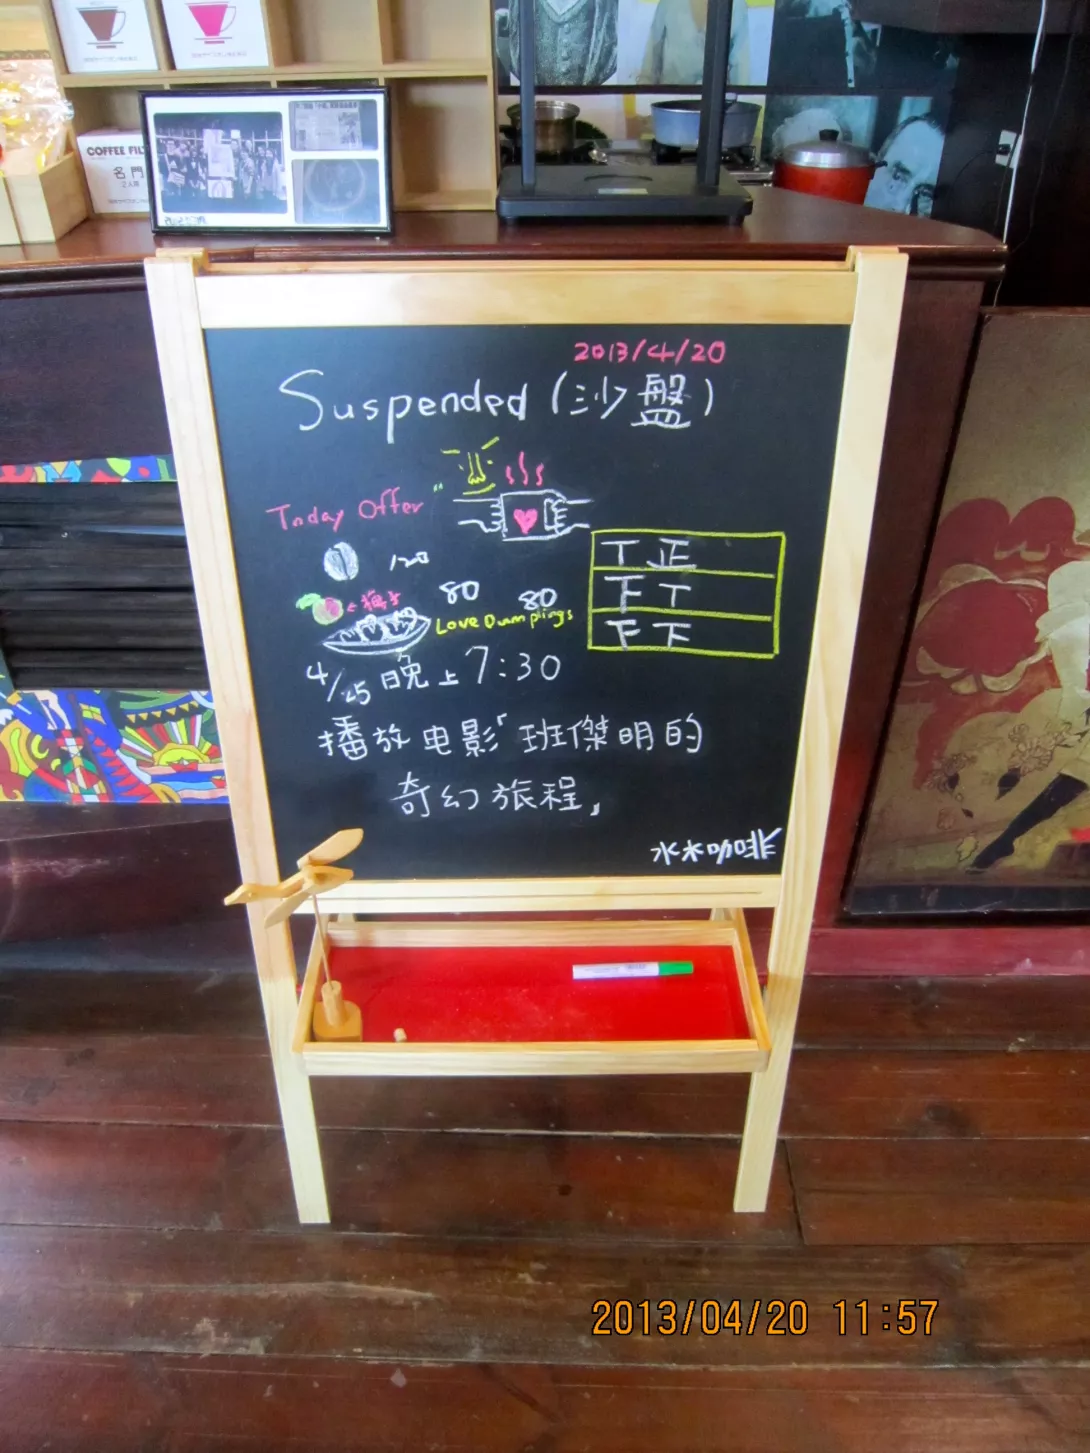 COFFEE FIL
名門
2人用
2013/4/20
Suspended (沙盤)
Today Offer
120
梅子
80 80
Love Dumplings
丅 正
下 丅
下 下
4/25 晚上 7:30
播放电影「班傑明的
奇幻旅程」
水木咖啡
2013/04/20 11:57